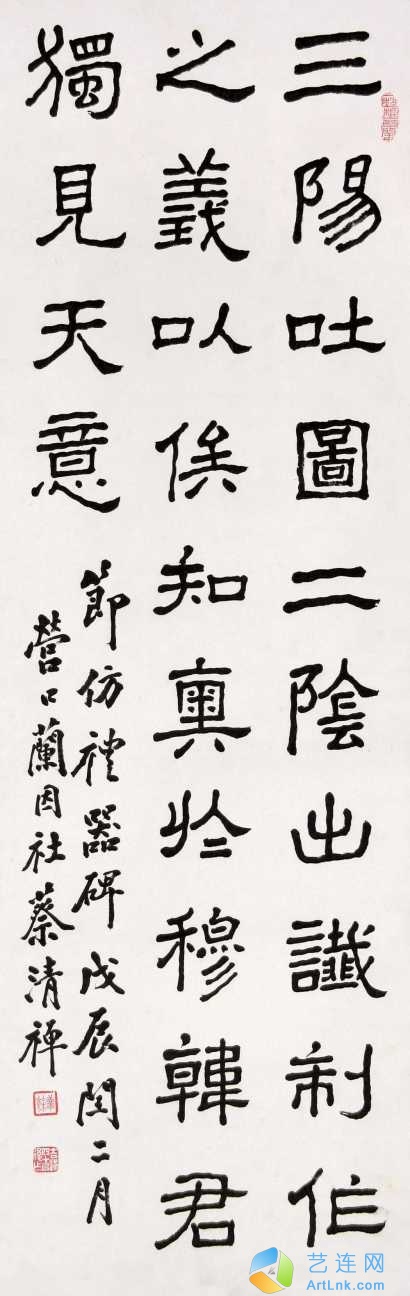 三陽吐圖二陰出讖制作
之義以俟知奧於穆韓君
獨見天意
節仿禮器碑戊辰閏二月
營口蘭因社蔡清禅
艺连网
ArtLnk.com